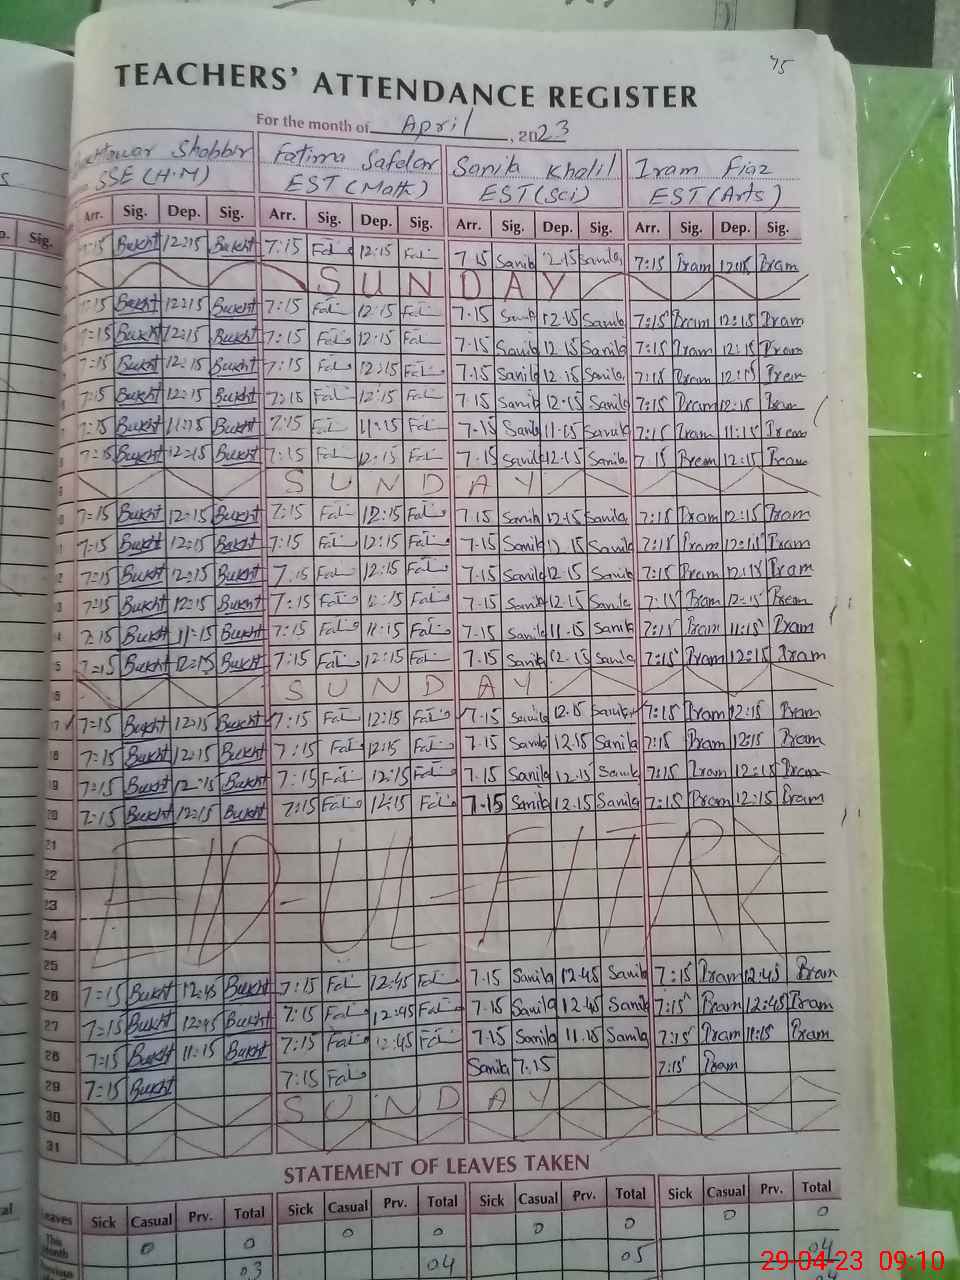 75
TEACHERS' ATTENDANCE REGISTER
For the month of April, 2023
Shabbir Fatima Safdar Sanila Khalil Iram Fiaz
SSE (H.M) EST (Math) EST (Sci) EST (Arts)
Sig. Arr. Sig. Dep. Sig. Arr. Sig. Dep. Sig. Arr. Sig. Dep. Sig. Arr. Sig. Dep. Sig.
:15 Bukht 12:15 Bukht 7:15 Fati 12:15 Fati 7.15 Sanila 12.15 Sanila 7:15 Iram 12:15 Iram
SUNDAY
7:15 Bukht 12:15 Bukht 7:15 Fati 12:15 Fati 7.15 Sanila 12.15 Sanila 7:15 Iram 12:15 Iram
7:15 Bukht 12:15 Bukht 7:15 Fati 12:15 Fati 7.15 Sanila 12.15 Sanila 7:15 Iram 12:15 Iram
7:15 Bukht 12:15 Bukht 7:15 Fati 12:15 Fati 7.15 Sanila 12.15 Sanila 7:15 Iram 12:15 Iram
7:15 Bukht 12:15 Bukht 7:15 Fati 12:15 Fati 7.15 Sanila 12.15 Sanila 7:15 Iram 12:15 Iram
7:15 Bukht 11:15 Bukht 7:15 Fati 11:15 Fati 7.15 Sanila 11.15 Sanila 7:15 Iram 11:15 Iram
7:15 Bukht 12:15 Bukht 7:15 Fati 12:15 Fati 7.15 Sanila 12.15 Sanila 7:15 Iram 12:15 Iram
9 SUNDAY
10 7:15 Bukht 12:15 Bukht 7:15 Fati 12:15 Fati 7.15 Sanila 12.15 Sanila 7:15 Iram 12:15 Iram
11 7:15 Bukht 12:15 Bukht 7:15 Fati 12:15 Fati 7.15 Sanila 12.15 Sanila 7:15 Iram 12:15 Iram
12 7:15 Bukht 12:15 Bukht 7:15 Fati 12:15 Fati 7.15 Sanila 12.15 Sanila 7:15 Iram 12:15 Iram
13 7:15 Bukht 12:15 Bukht 7:15 Fati 12:15 Fati 7.15 Sanila 12.15 Sanila 7:15 Iram 12:15 Iram
14 7:15 Bukht 11:15 Bukht 7:15 Fati 11:15 Fati 7.15 Sanila 11.15 Sanila 7:15 Iram 11:15 Iram
15 7:15 Bukht 12:15 Bukht 7:15 Fati 12:15 Fati 7.15 Sanila 12.15 Sanila 7:15 Iram 12:15 Iram
16 SUNDAY
17 7:15 Bukht 12:15 Bukht 7:15 Fati 12:15 Fati 7.15 Sanila 12.15 Sanila 7:15 Iram 12:15 Iram
18 7:15 Bukht 12:15 Bukht 7:15 Fati 12:15 Fati 7.15 Sanila 12.15 Sanila 7:15 Iram 12:15 Iram
19 7:15 Bukht 12:15 Bukht 7:15 Fati 12:15 Fati 7.15 Sanila 12.15 Sanila 7:15 Iram 12:15 Iram
20 7:15 Bukht 12:15 Bukht 7:15 Fati 12:15 Fati 7.15 Sanila 12.15 Sanila 7:15 Iram 12:15 Iram
21
22
EID-UL-FITR
23
24
25
26 7:15 Bukht 12:45 Bukht 7:15 Fati 12:45 Fati 7.15 Sanila 12.45 Sanila 7:15 Iram 12:45 Iram
27 7:15 Bukht 12:45 Bukht 7:15 Fati 12:45 Fati 7.15 Sanila 12.45 Sanila 7:15 Iram 12:45 Iram
28 7:15 Bukht 11:15 Bukht 7:15 Fati 12:45 Fati 7.15 Sanila 11.15 Sanila 7:15 Iram 11:15 Iram
29 7:15 Bukht 7:15 Fati Sanila 7.15 7:15 Iram
30 SUNDAY
31
STATEMENT OF LEAVES TAKEN
Leaves Sick Casual Prv. Total Sick Casual Prv. Total Sick Casual Prv. Total Sick Casual Prv. Total
This Month 0 0 0 0 0 0 0 0
03 04 05 04
29-04-23 09:10